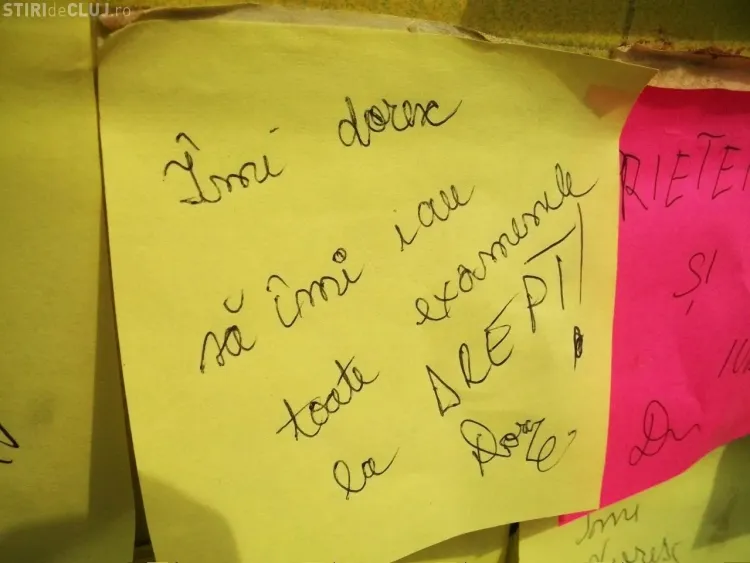 STIRIdeCLUJ.ro
Îmi doresc
să îmi iau
toate examenele
la DREPT!
RIETEI
ȘI
Îmi
doresc